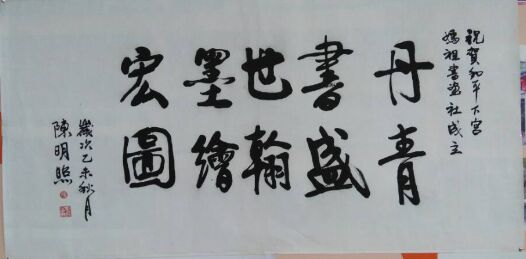 祝賀和平下宮
媽祖書畫社成立
丹青
書盛
世翰
墨繪
宏圖
歲次乙未秋月
陳明照